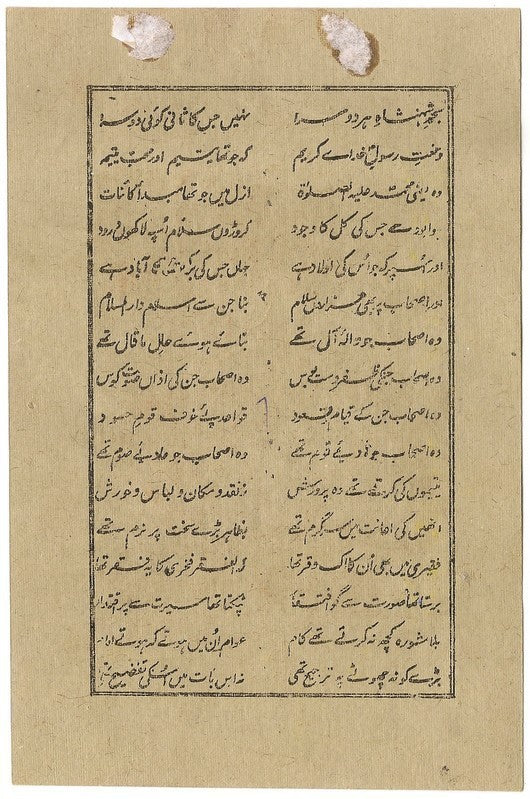 بجز شہنشاہ ہر دوسرا نہیں جس کا ثانی کوئی دوسرا
و نعت رسول خدائے کریم کہ جو تھا یتیم اور محب یتیم
وہ یعنی محمد علیہ الصلوٰۃ ازل میں جو تھا مبدأ کائنات
ہوا نور سے جس کی کل کا وجود کروڑوں سلام اُسپہ لاکھوں درود
اور اُسپر کہ جو اُس کی اولاد ہے جہاں جس کی برکت سے آباد ہے
اور اصحاب پر بھی ہزاراں سلام بنا جن سے اسلام دار السلام
وہ اصحاب جو والۂ آل تھے بنائے ہوئے حال ما قال تھے
وہ اصحاب جنکی ظفر وہ اصحاب جن کی اذاں صوت کوس
وہ اصحاب جن کے قیام و قعود قواعد پئے خوف قوم حسود
وہ اصحاب جو ہادئے قوم تھے وہ اصحاب جو عادئے صوم تھے
یتیموں کی کرتے تھے وہ پرورش ز نقد و مکان و لباس و خورش
انھیں کی اعانت میں سرگرم تھے بظاہر بڑے سخت پر نرم تھے
فقیری میں بھی اُن کا اک وقر تھا کہ الفقر فخری کا یہ فقر تھا
برستا تھا صورت سے گو افتقار ٹپکتا تھا سیرت سے پر اقتدار
بلا مشورہ کچھ نہ کرتے تھے کام عوام اُن میں ہوتے کہ ہوتے امام
بڑے کو نہ چھوٹے پہ ترجیح تھی نہ اس بات میں اُنکی تفضیح تھی